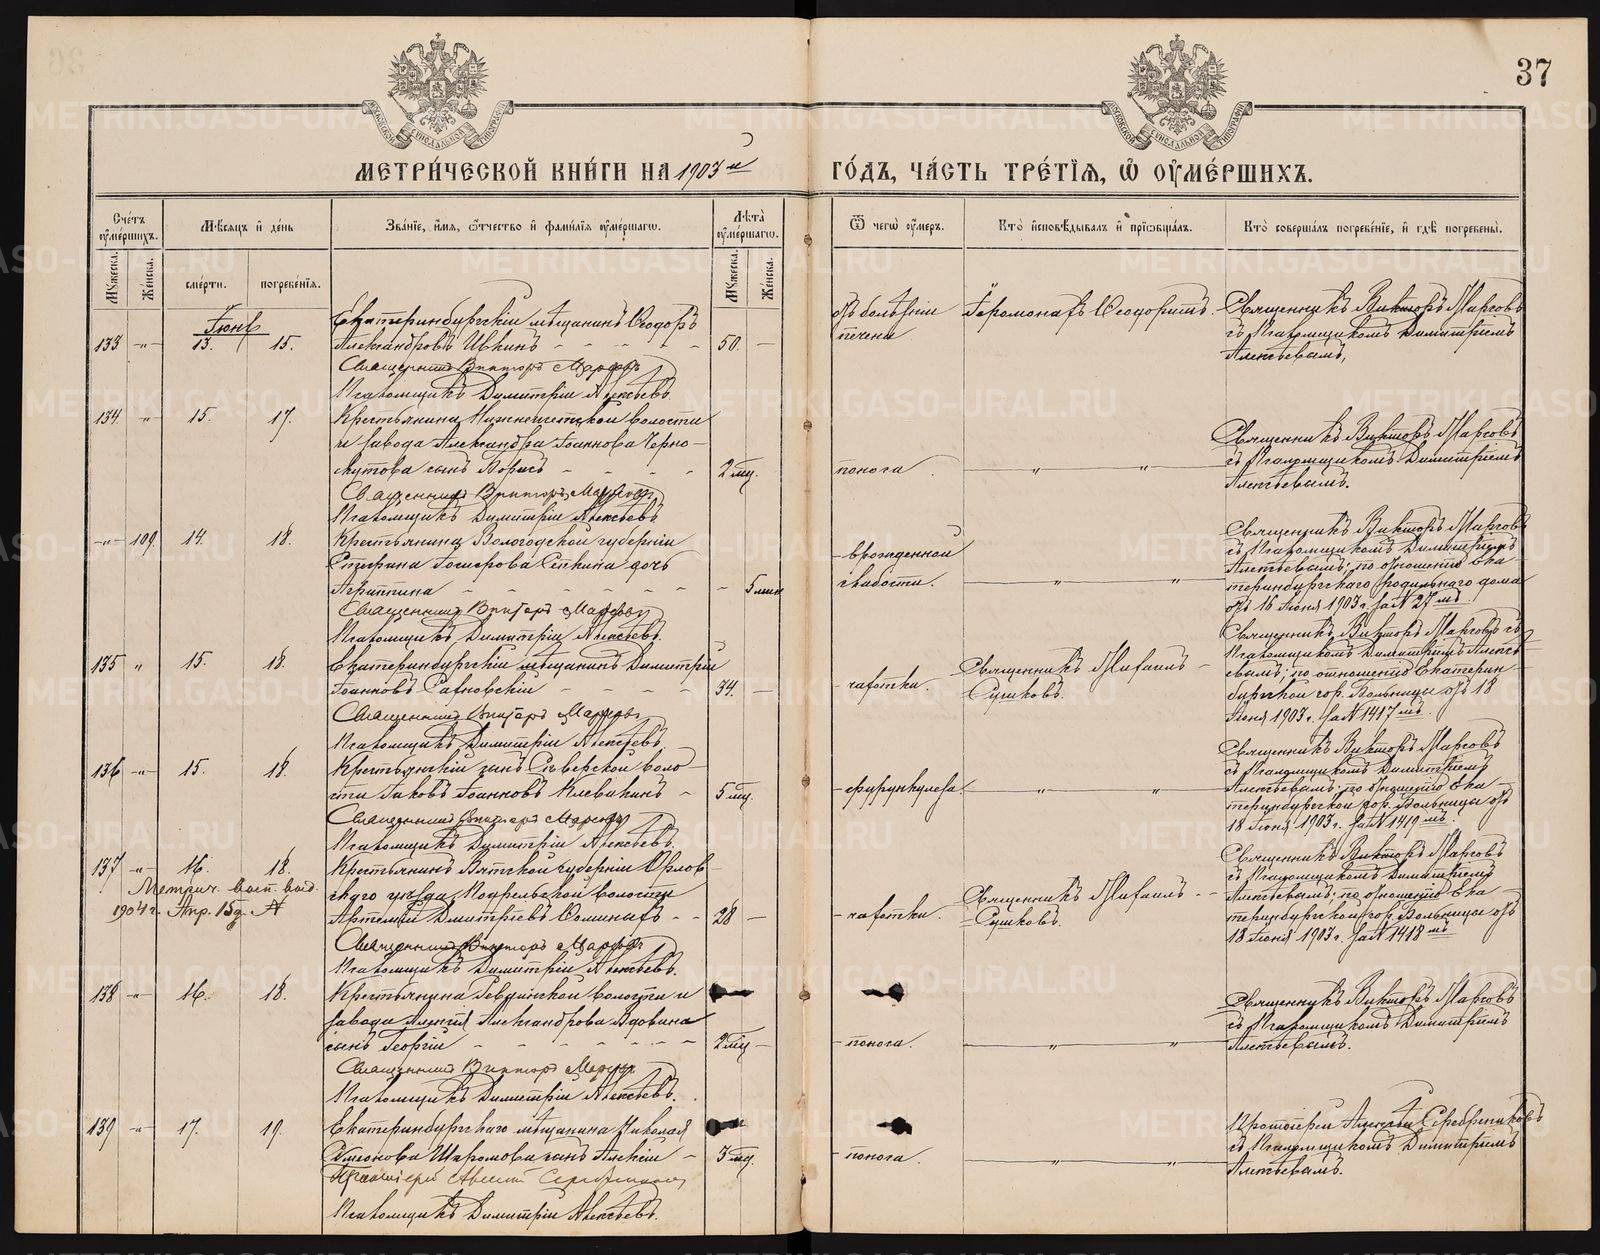 37
МЕТРИ́ЧЕСКОЙ КНИ́ГИ НА 1903й ГО́ДЪ, ЧА́СТЬ ТРЕ́ТІѦ, Ѽ ОУ҆МЕ́РШИХЪ.
Сче́тъ оу҆ме́ршихъ.
Му́жеска.
Же́нска.
Мѣ́сѧцъ и҆ де́нь
сме́рти.
погребе́нїѧ.
Зва́нїе, и҆́мѧ, ѻ҆́тчество и҆ фами́лїѧ оу҆ме́ршагѡ.
Лѣ́та оу҆ме́ршагѡ.
Му́жеска.
Же́нска.
Ѿ чегѡ̀ оу҆́меръ.
Кто̀ и҆сповѣ́дывалъ и҆ прїѡбща́лъ.
Кто̀ соверша́лъ погребе́нїе, и҆ гдѣ̀ погребены̀.
Іюнь
133 -"- 13. 15.
Екатеринбургскій мѣщанинъ Ѳеодоръ
Александровъ Ивкинъ - - - - - 50. -
Священникъ Викторъ Мар
Псаломщикъ Димитрій Алексѣевъ.
отъ болѣзни
печени
Іеромонахъ Ѳеодоритъ.
Священникъ Викторъ
съ Псаломщикомъ Димитріемъ
Алексѣевымъ.
134 " 15. 17.
Крестьянина Нижнеисетской волости
и завода Александра Іоаннова Черно-
скутова сынъ Борисъ - - - - 2 мц.
Священникъ Викторъ
Псаломщикъ Димитрій Алексѣевъ
поноса.
" "
Священникъ Викторъ
съ Псаломщикомъ Димитріемъ
Алексѣевымъ.
-"- 109. 14. 18.
Крестьянина Вологодской губерніи
дочь
Агриппина - - - - - - 5 мин
Священникъ Викторъ
Псаломщикъ Димитрій Алексѣевъ.
врожденной
слабости.
" "
Священникъ Викторъ
съ Псаломщикомъ Димитріемъ
Алексѣевымъ; по отношенію Ека-
теринбургскаго родильнаго дома
отъ 16 Іюня 1903 г. за № 27мъ
135 " 15. 18.
Екатеринбургскій мѣщанинъ Димитрій
Іоанновъ - - - - 34. -
Священникъ Викторъ
Псаломщикъ Димитрій Алексѣевъ.
чахотки.
Священникъ Михаилъ
Сушковъ.
Священникъ Викторъ съ
Псаломщикомъ Димитріемъ Алексѣ-
евымъ; по отношенію Екатерин-
бургской гор. больницы отъ 18
Іюня 1903 г. за № 1417мъ.
136 -"- 15. 18.
Крестьянскій сынъ Сѣверской воло-
сти Іаковъ Іоанновъ Клевакинъ - 5 мц.
Священникъ Викторъ
Псаломщикъ Димитрій Алексѣевъ.
фурункулеза.
" "
Священникъ Викторъ
съ Псаломщикомъ Димитріемъ
Алексѣевымъ; по отношенію Ека-
теринбургской гор. больницы отъ
18 Іюня 1903 г. за № 1419мъ.
137 " 16. 18.
Метрич. вып. выд.
1904 г. Апр. 15 д. №
Крестьянинъ Вятской губерніи Орлов-
скаго уѣзда, волости
Артемій Димитріевъ - - 28 -
Священникъ Викторъ
Псаломщикъ Димитрій Алексѣевъ.
чахотки.
Священникъ Михаилъ
Сушковъ.
Священникъ Викторъ
съ Псаломщикомъ Димитріемъ
Алексѣевымъ; по отношенію Ека-
теринбургской гор. больницы отъ
18 Іюня 1903 г. за № 1418мъ
138 -"- 16. 18.
Крестьянина Ревдинской волости и
завода Алексія Александрова Вдовина
сынъ Георгій - - - - - - 2 мц -
Священникъ Викторъ
Псаломщикъ Димитрій Алексѣевъ.
поноса.
" "
Священникъ Викторъ
съ Псаломщикомъ Димитріемъ
Алексѣевымъ.
139 -"- 17. 19.
Екатеринбургскаго мѣщанина Николая
Симеонова сынъ Алексій - 3 мц.
Протоіерей
Псаломщикъ Димитрій Алексѣевъ.
поноса.
" "
Протоіерей Алексій Серебренниковъ
съ Псаломщикомъ Димитріемъ
Алексѣевымъ.
METRIKI.GASO-URAL.RU